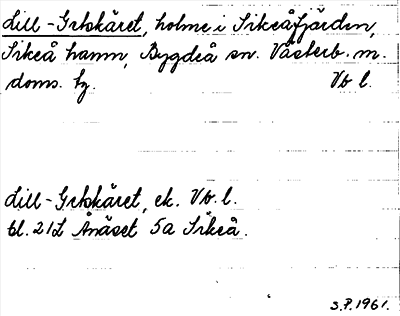 Lill-Grkskäret, holme i Sikeåfjärden,
Sikeå hamn, Bygdeå sn. Västerb. m.
doms. tg. Vb l.
Lill-Grkskäret, ek. Vb. l.
bl. 21L Ånäset 5a Sikeå.
S.P. 1961.